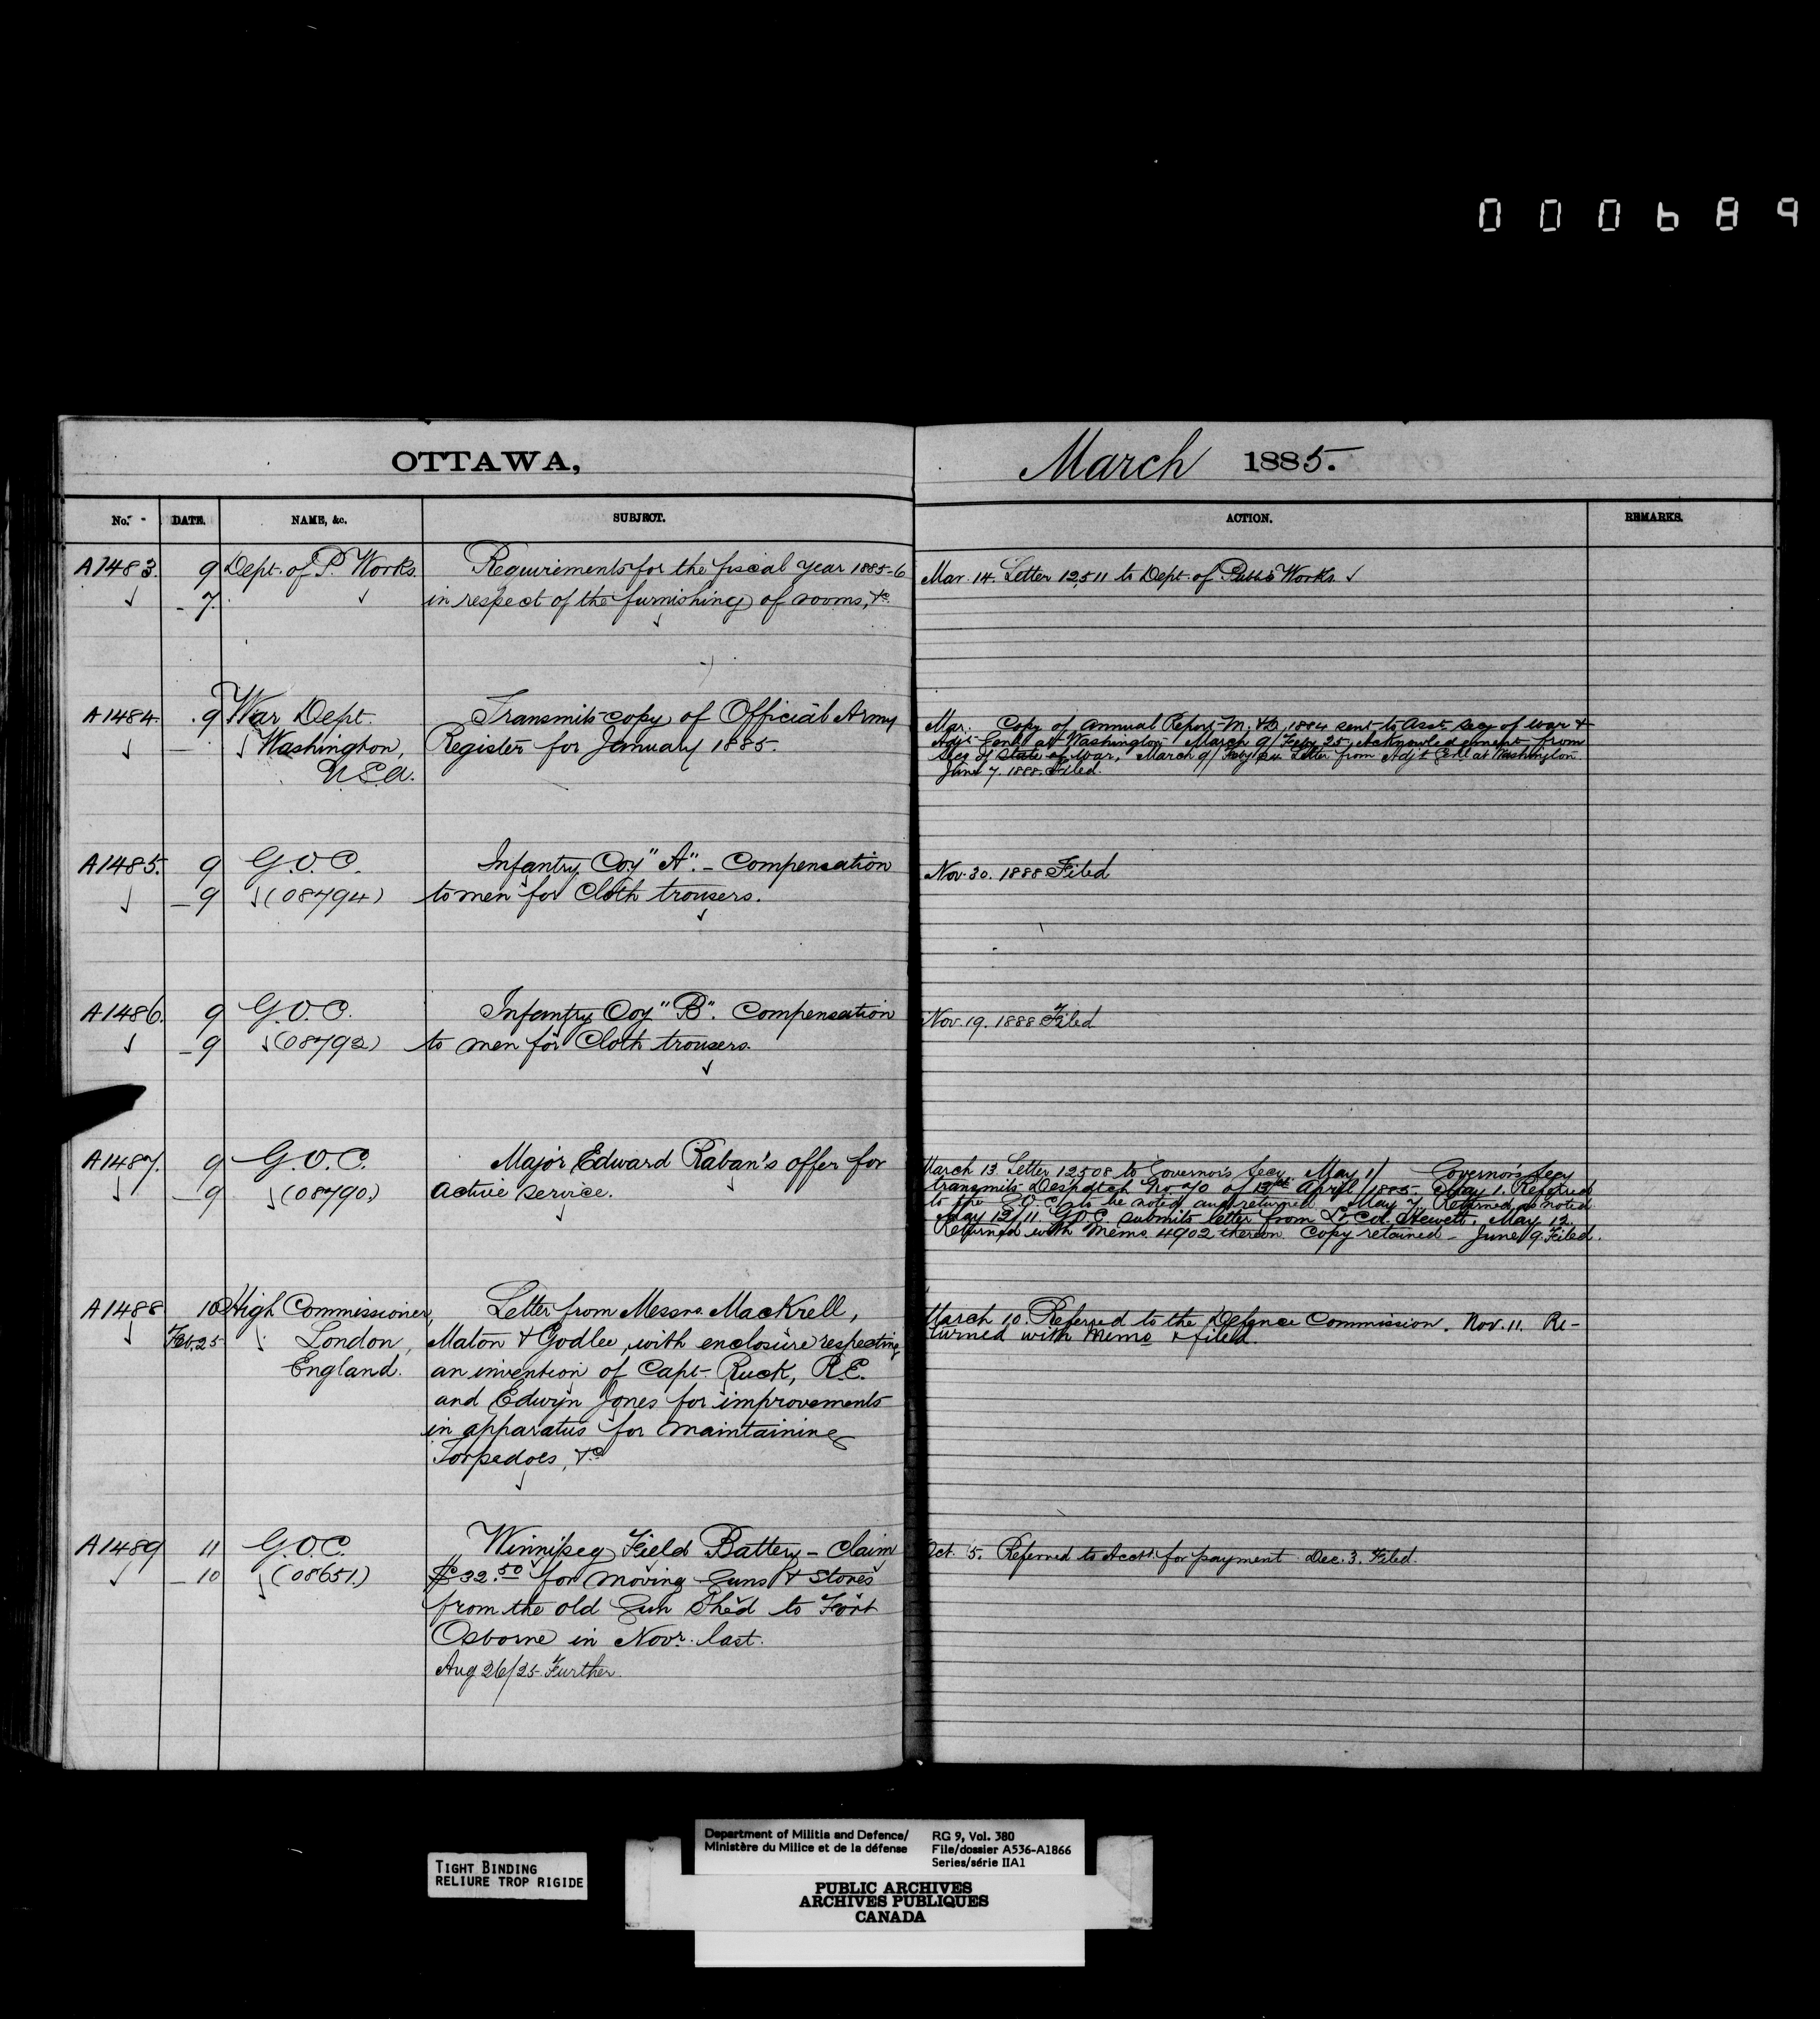 000689
OTTAWA,
March 1885.
No. DATE. NAME, &c. SUBJECT. ACTION. REMARKS.
A1483. 9 Dept. of P. Works. Requirements for the fiscal year 1885-6
- 7. in respect of the furnishing of rooms, &c.
Mar. 14. Letter 12511 to Dept. of Public Works.
A1484. 9 War Dept. Transmits copy of Official Army
— Washington, Register for January 1885.
U.S.A.
Mar. Copy of Annual Report M. & D. 1884 sent to Asst. Secy of War &
Adjt Genl at Washington March 9/Feby 25, Acknowledgement from
Secy of State of War, March 9/Feby Letter from Adjt Genl at Washington.
June 7. 1888. Filed.
A1485. 9 G.O.C. Infantry Coy "A". - Compensation
- 9 (08794) to men for Cloth trousers.
Nov. 30. 1888 Filed
A1486. 9 G.O.C. Infantry Coy "B". Compensation
- 9 (08792) to men for Cloth trousers.
Nov. 19. 1888 Filed
A1487. 9 G.O.C. Major Edward Raban's offer for
- 9 (08790.) active service.
March 13. Letter 12508 to Governor's Secy. May 1/ Governor's Secy
transmits Despatch No 70 of 13th April 1885. May 1. Referred
to the G.O.C. to be noted and returned. May 7. Returned as noted.
May 12/11. G.O.C. submits letter from Lt. Col. Hewett. May 12.
Returned with Memo 4902 thereon Copy retained - June 9. Filed.
A1488 10 High Commissioner, Letter from Messrs. Mackrell,
Feb. 25 London, Maton & Godlee, with enclosure respecting
England. an invention of Capt. Ruck, R.E.
and Edwyn Jones for improvements
in apparatus for maintaining
Torpedoes, &c
March 10. Referred to the Defence Commission. Nov. 11. Re-
turned with Memo & filed
A1489 11 G.O.C. Winnipeg Field Battery - Claim
- 10 (08651.) $32.50 for moving Guns & Stores
from the old Gun Shed to Fort
Osborne in Novr. last.
Aug 26/25 Further.
Oct. 5. Referred to Acctt. for payment Dec. 3. Filed.
TIGHT BINDING
RELIURE TROP RIGIDE
Department of Militia and Defence/
Ministère du Milice et de la défense
RG 9, Vol. 380
File/dossier A536-A1866
Series/série IIA1
PUBLIC ARCHIVES
ARCHIVES PUBLIQUES
CANADA